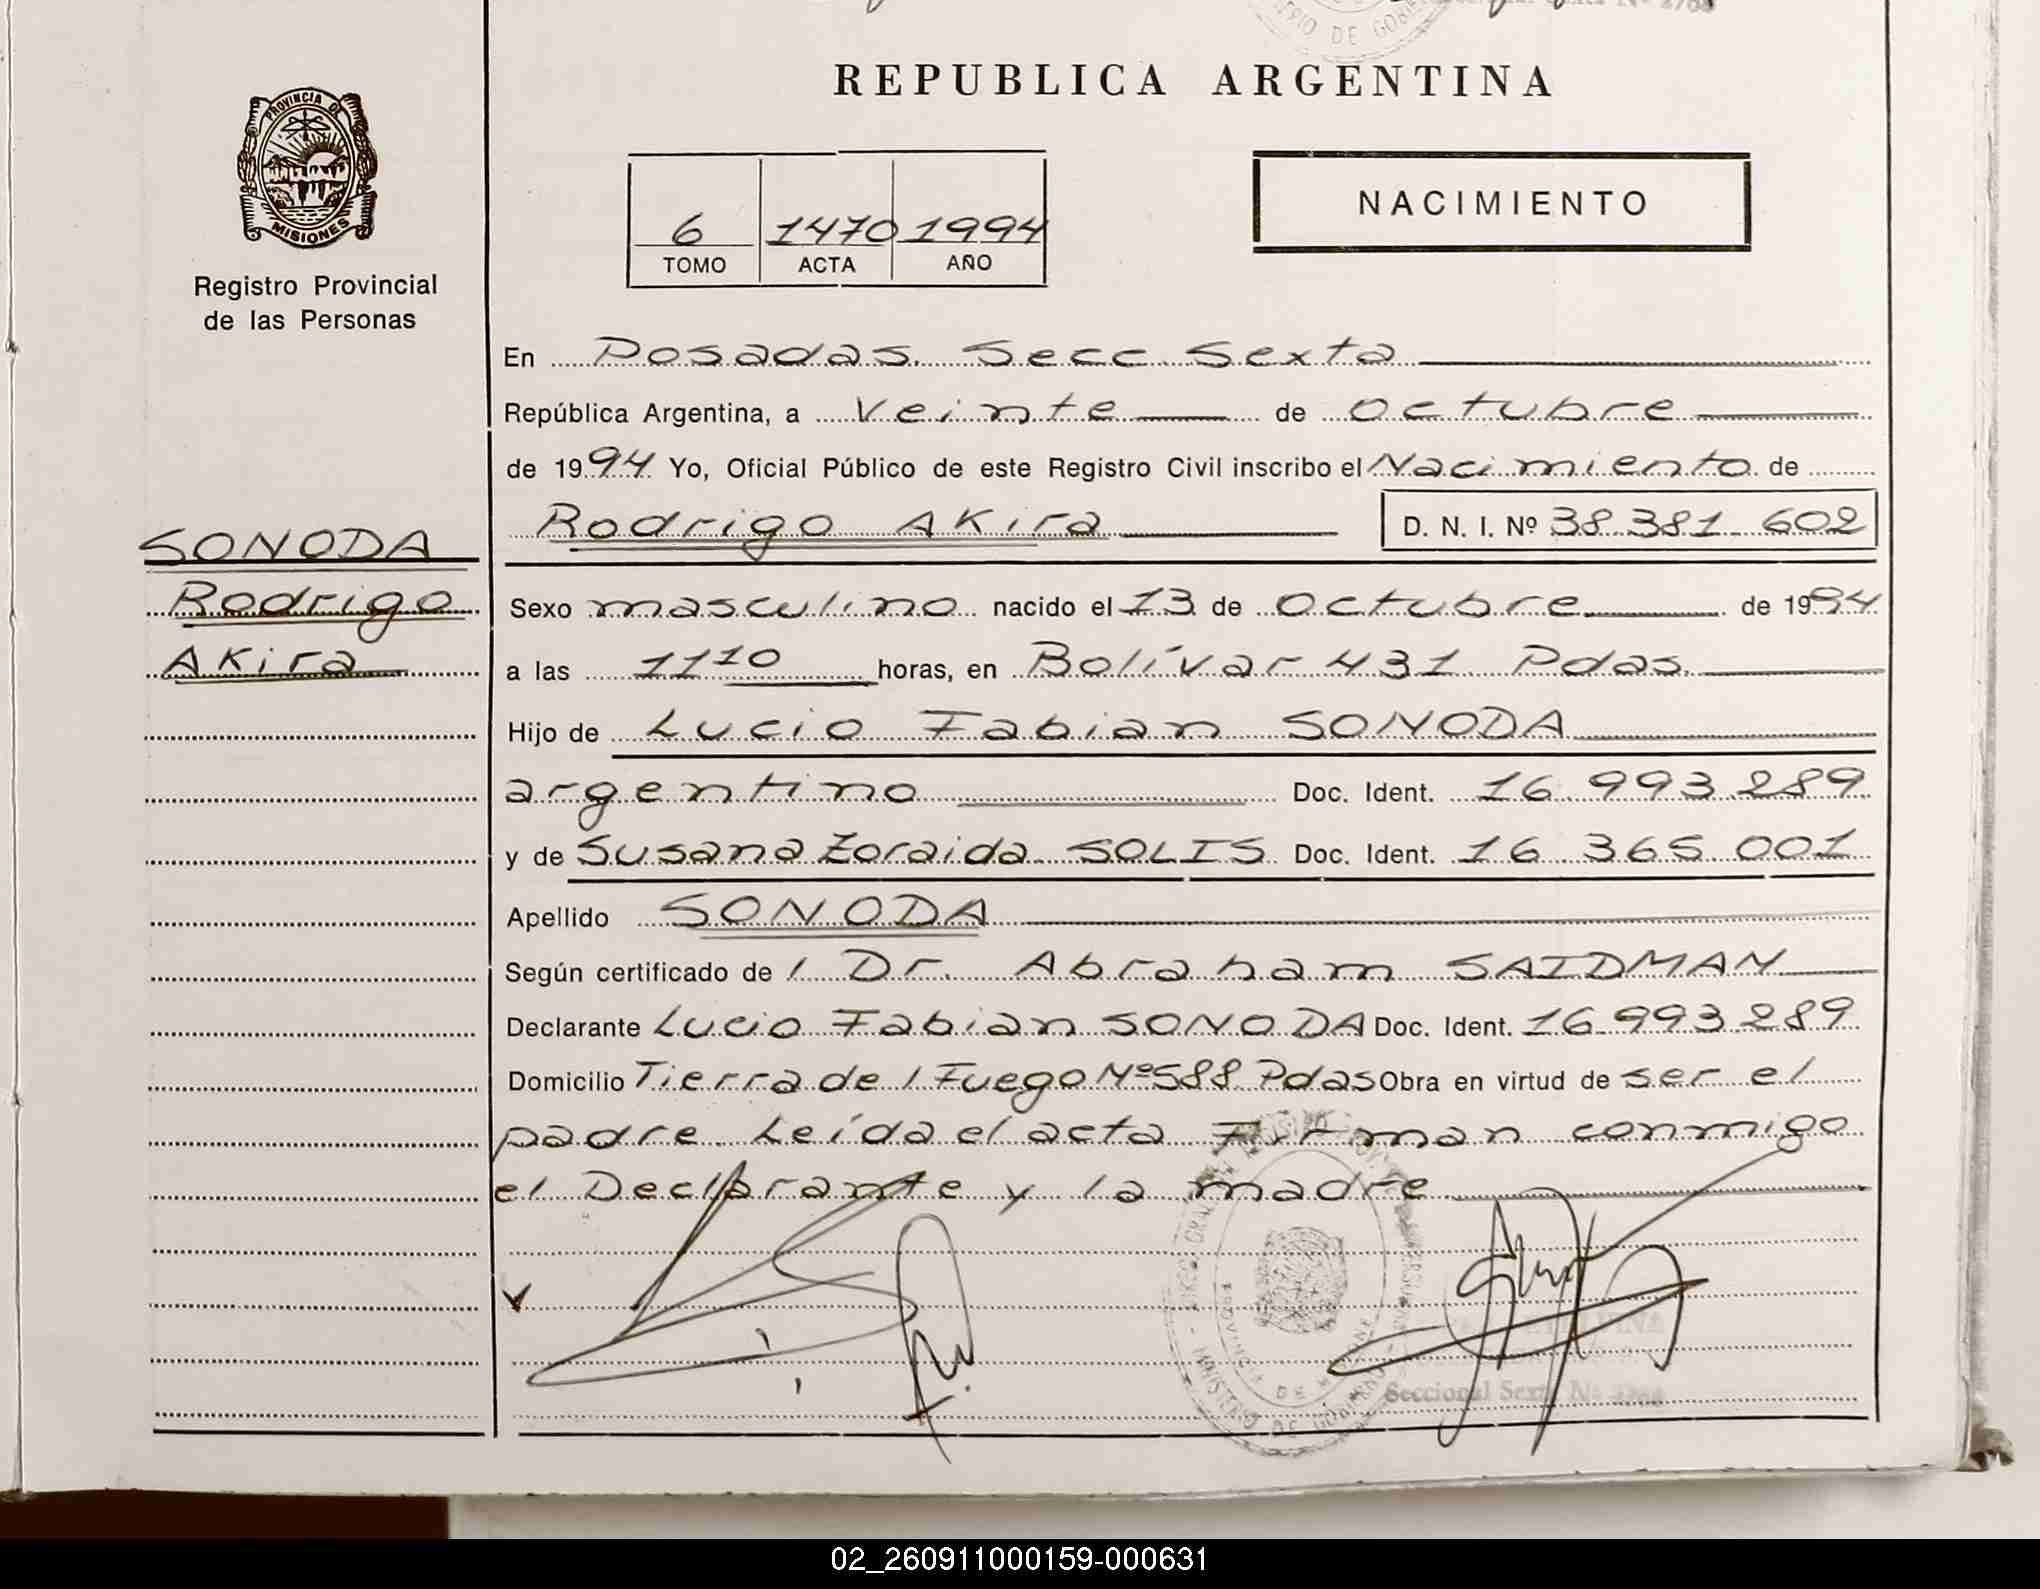 REPUBLICA ARGENTINA
PROVINCIA DE
MISIONES
Registro Provincial
de las Personas
6 1470 1994
TOMO ACTA AÑO
NACIMIENTO
En Posadas. Secc. Sexta
República Argentina, a Veinte de octubre
de 1994 Yo, Oficial Público de este Registro Civil inscribo el Nacimiento de
Rodrigo AKira D. N. I. Nº 38.381.602
SONODA
Rodrigo
AKira
Sexo masculino nacido el 13 de octubre de 1994
a las 11 10 horas, en Bolívar 431 Pdas.
Hijo de Lucio Fabian SONODA
argentino Doc. Ident. 16.993.289
y de Susana Zoraida SOLIS Doc. Ident. 16.365.001
Apellido SONODA
Según certificado de l Dr. Abraham SAIDMAN
Declarante Lucio Fabian SONODA Doc. Ident. 16.993.289
Domicilio Tierra del Fuego Nº588 Pdas Obra en virtud de ser el
padre. Leída el acta Firman conmigo
el Declarante y la madre
PROVINCIA DE
MINISTERIO DE GOBIERNO
Seccional Sexta Nº
02_260911000159-000631